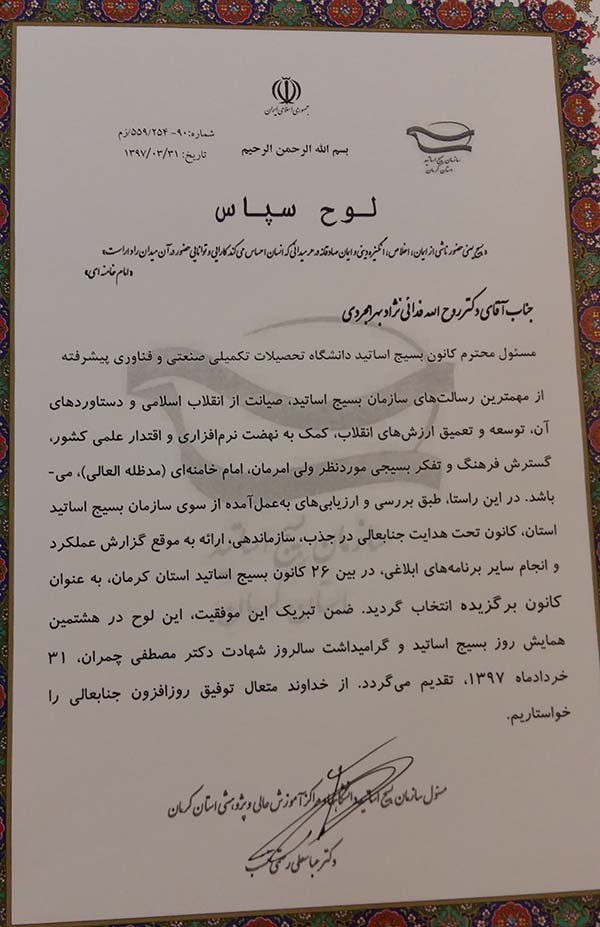 جمهوری اسلامی ایران
شماره: ۹۰- ۵۵۹/۲۵۴/زم
تاریخ: ۱۳۹۷/۰۳/۳۱
بسم الله الرحمن الرحیم
سازمان بسیج اساتید
استان کرمان
لوح سپاس
«بسیج یعنی حضور ناشی از ایمان، اخلاص، انگیزه دینی و ایمان صادقانه در هر میدانی که انسان احساس می کند کارایی و توانایی حضور در آن میدان را دارد است»
«امام خامنه ای»
جناب آقای دکتر روح الله فدائی نژاد بهرامجردی
مسئول محترم کانون بسیج اساتید دانشگاه تحصیلات تکمیلی صنعتی و فناوری پیشرفته
از مهمترین رسالت‌های سازمان بسیج اساتید، صیانت از انقلاب اسلامی و دستاوردهای
آن، توسعه و تعمیق ارزش‌های انقلاب، کمک به نهضت نرم‌افزاری و اقتدار علمی کشور،
گسترش فرهنگ و تفکر بسیجی موردنظر ولی امرمان، امام خامنه‌ای (مدظله العالی)، می-
باشد. در این راستا، طبق بررسی و ارزیابی‌های به‌عمل‌آمده از سوی سازمان بسیج اساتید
استان، کانون تحت هدایت جنابعالی در جذب، سازماندهی، ارائه به موقع گزارش عملکرد
و انجام سایر برنامه‌های ابلاغی، در بین ۲۶ کانون بسیج اساتید استان کرمان، به عنوان
کانون برگزیده انتخاب گردید. ضمن تبریک این موفقیت، این لوح در هشتمین
همایش روز بسیج اساتید و گرامیداشت سالروز شهادت دکتر مصطفی چمران، ۳۱
خردادماه ۱۳۹۷، تقدیم می‌گردد. از خداوند متعال توفیق روزافزون جنابعالی را
خواستاریم.
مسئول سازمان بسیج اساتید دانشگاهها و مراکز آموزش عالی و پژوهشی استان کرمان
دکتر عباسعلی رستمی نسب